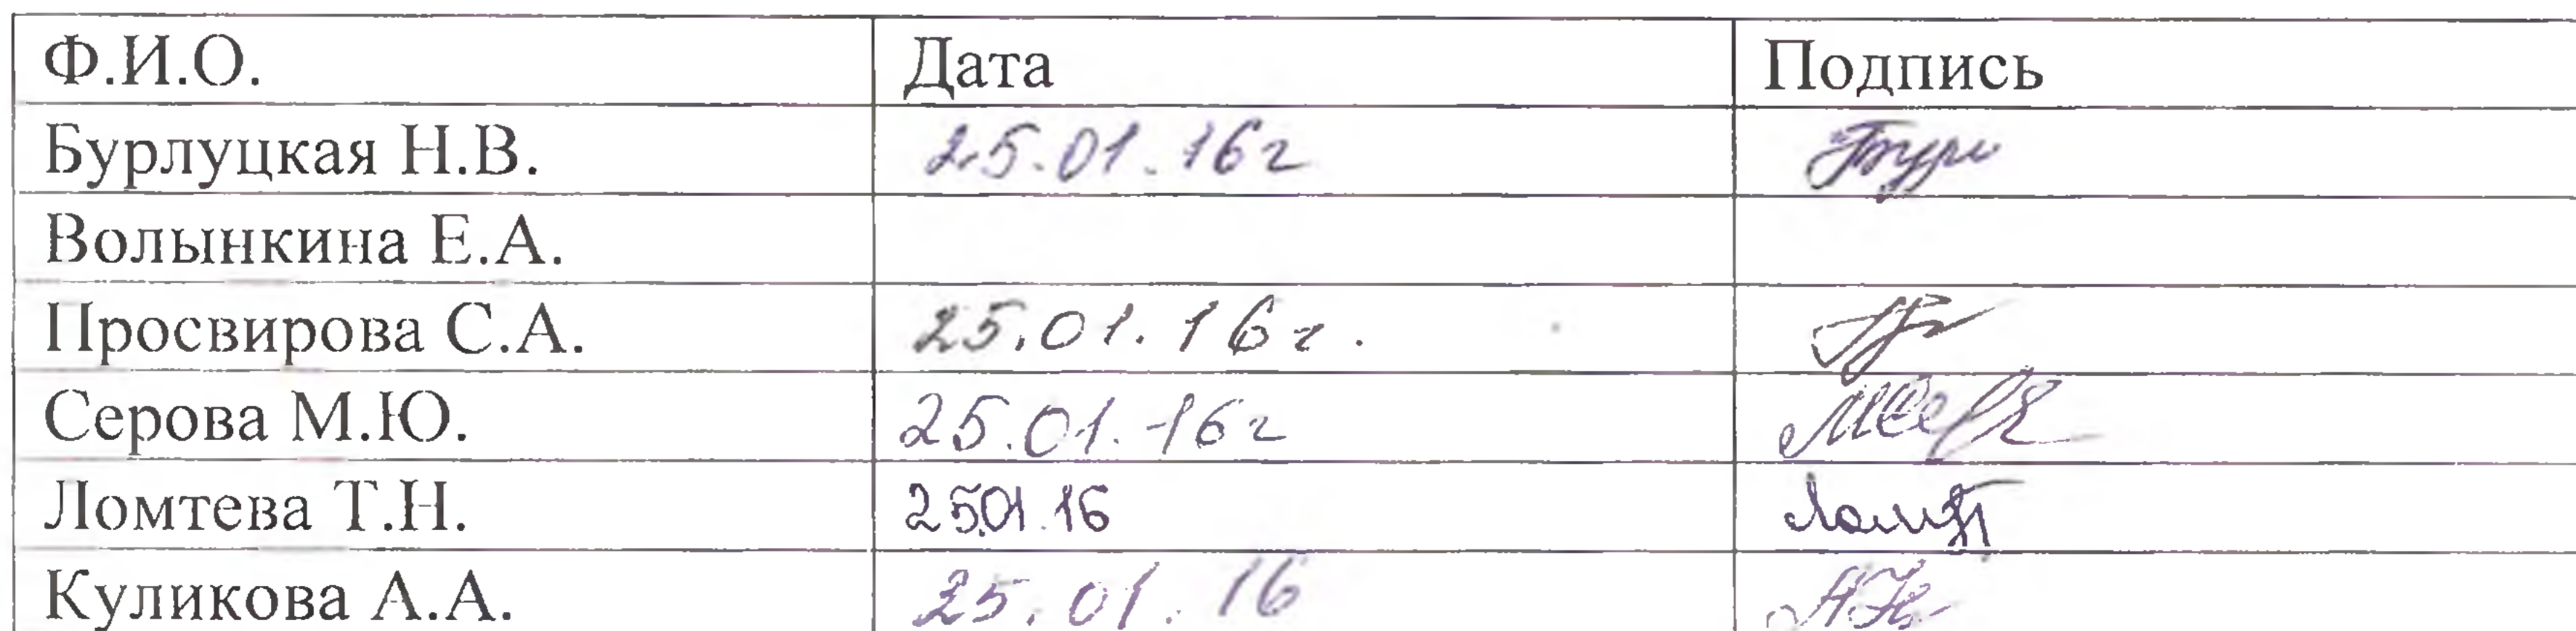 Ф.И.О. Дата Подпись
Бурлуцкая Н.В. 25.01.16г
Волынкина Е.А.
Просвирова С.А. 25.01.16г.
Серова М.Ю. 25.01.16г
Ломтева Т.Н. 25.01.16
Куликова А.А. 25.01.16